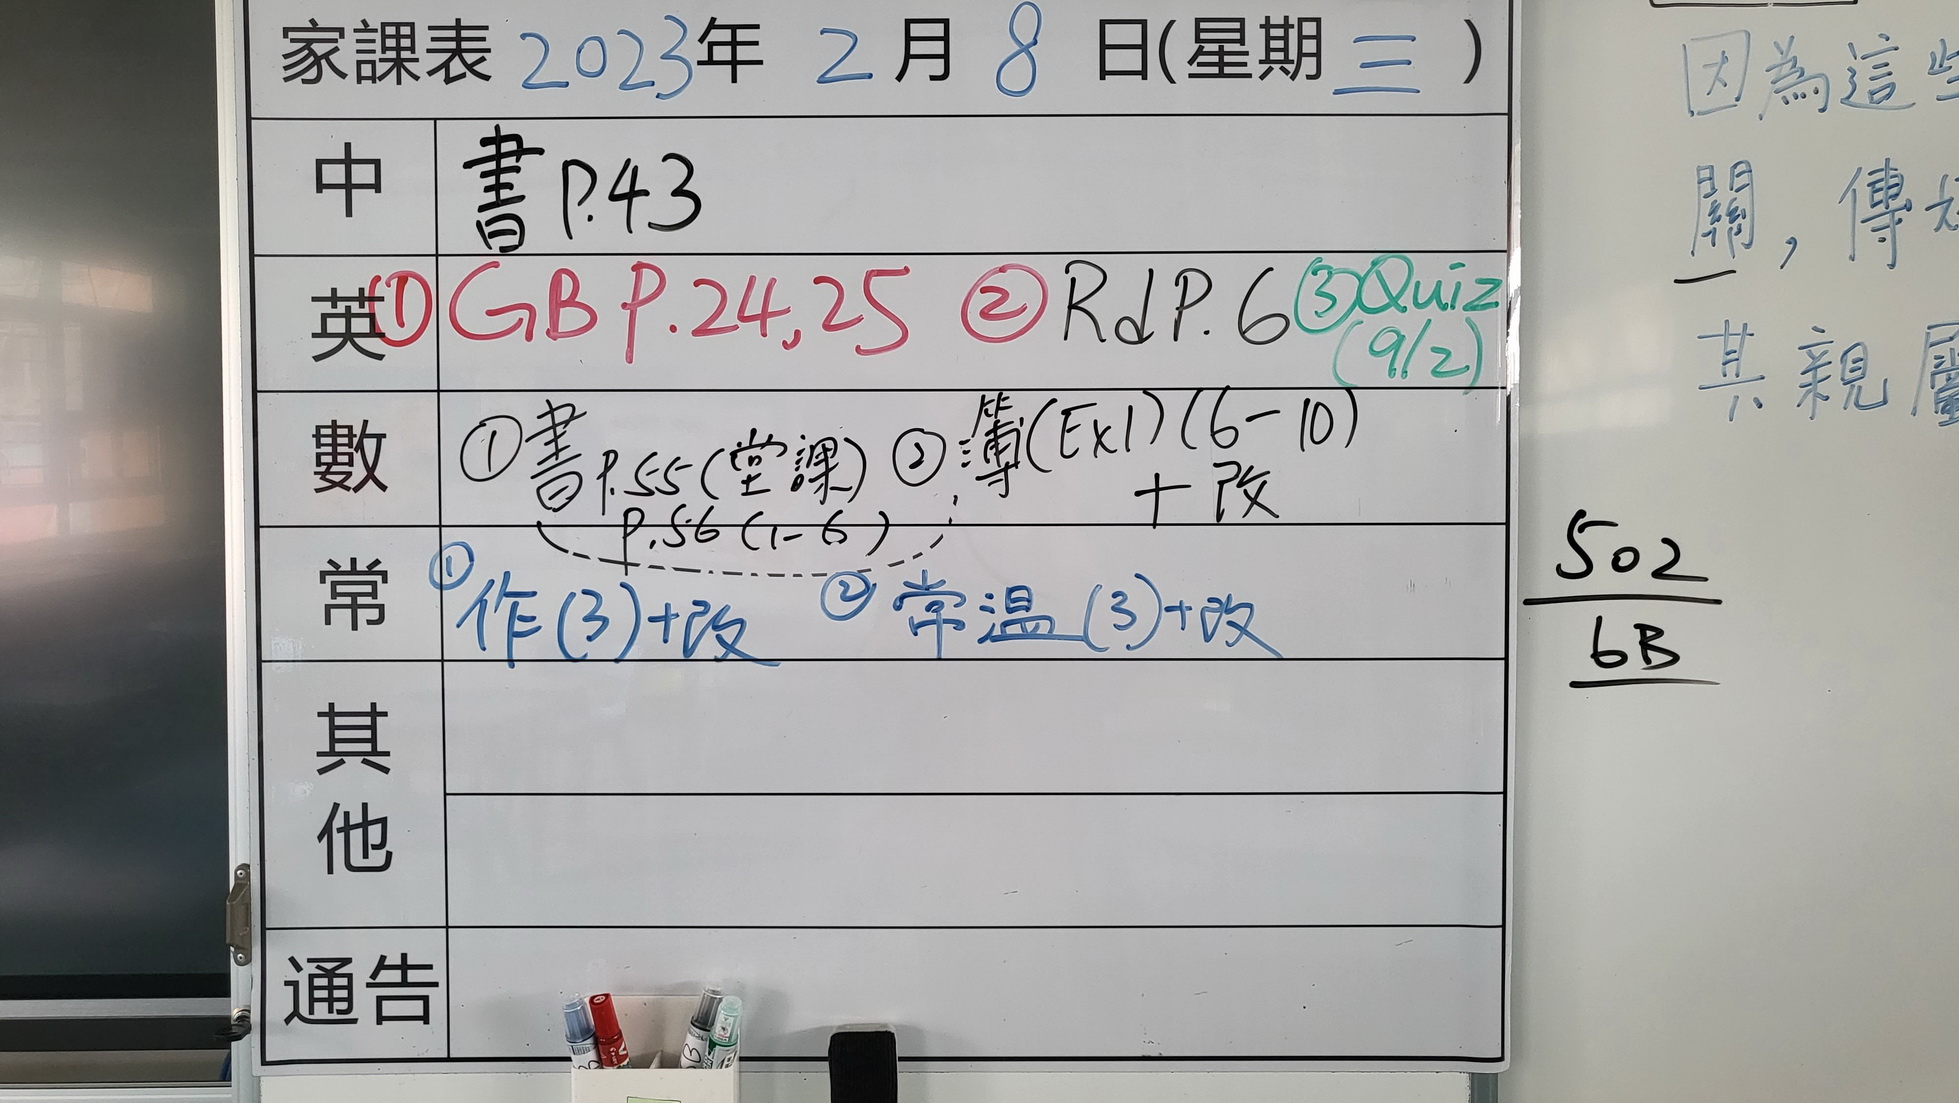 家課表 2023年 2月 8日(星期三)
中 書 P.43
英 ① GB P.24,25 ② Rd P.6 ③ Quiz
(9/2)
數 ① 書 P.55(堂課) ② 簿(Ex1)(6-10)
+改
P.56(1-6)
常 ① 作(3)+改 ② 常温(3)+改
其他
通告
因為這些
關,傳
其親屬
502
6B